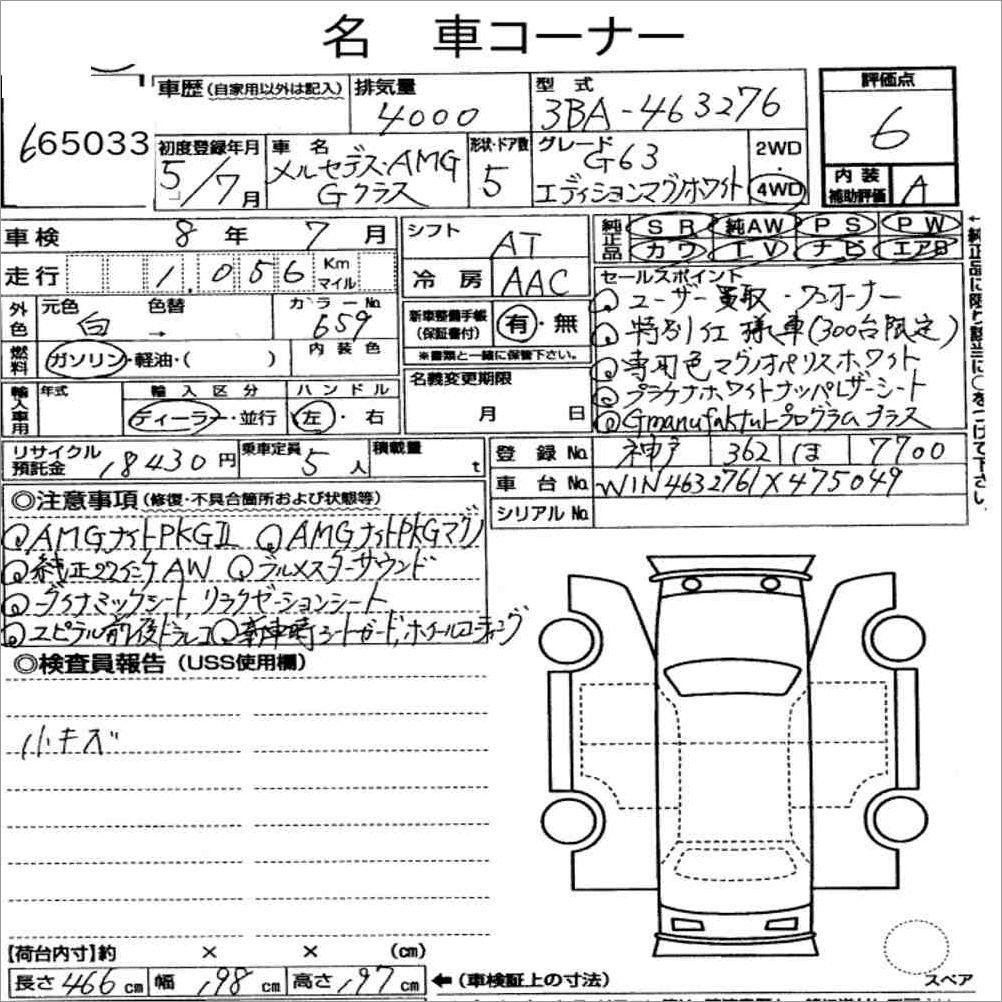 名 車コーナー
665033
車歴 (自家用以外は記入)
排気量
4000
型 式
3BA-463276
評価点
6
初度登録年月
5/7月
車 名
メルセデス・AMG
Gクラス
形状・ドア数
5
グレード
G63
エディションマグノホワイト
2WD
・
4WD
内 装
補助評価
A
車検 8 年 7 月
シフト AT
純正品
SR 純AW PS PW
カワ TV ナビ エアB
走行 1.056 Km
マイル
冷 房 AAC
セールスポイント
ユーザー買取・ワンオーナー
特別仕様車(300台限定)
専用色マグノオパリスホワイト
プラチナホワイトナッパレザーシート
Gmanufakturプログラムプラス
外色
元色 色替 カラーNo
白 → 659
新車整備手帳
(保証書付)
有・無
※書類と一緒に保管下さい。
燃料
ガソリン・軽油・( )
内 装 色
名義変更期限
月 日
輸入車用
年式
輸 入 区 分
ディーラー・並行
ハ ン ド ル
左・右
リサイクル
預託金
18430円
乗車定員
5人
積載量
t
登 録 No. 神戸 362 ほ 7700
車 台 No. W1N4632761X475049
シリアル No.
◎注意事項 (修復・不具合箇所および状態等)
AMGナイトPKGⅡ AMGナイトPKGマグノ
純正22インチAW ブルメスターサウンド
ダイナミックシート、リラクゼーションシート
ユピテル前後ドラレコ 新車時シートガード、ホイールコーティング
◎検査員報告 (USS使用欄)
小キズ
【荷台内寸】約 × × (cm)
長さ 466 cm 幅 198 cm 高さ 197 cm
←(車検証上の寸法)
スペア